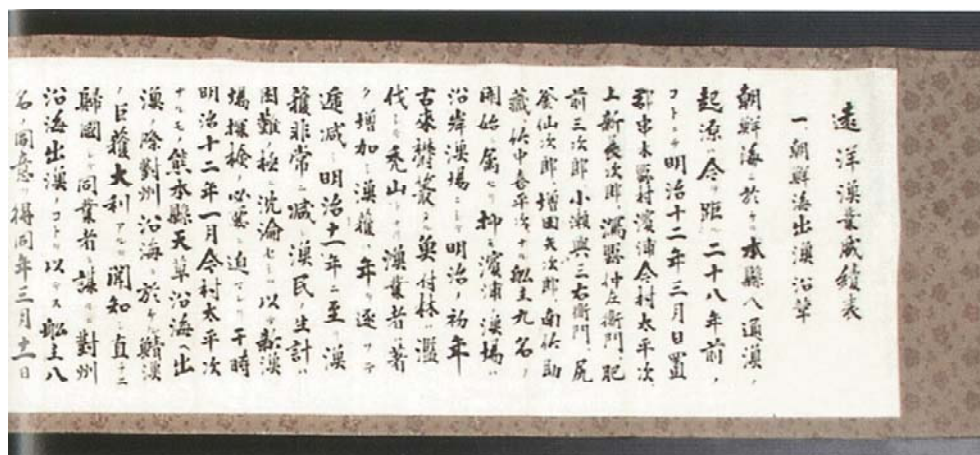 遠洋漁業成績表
一、朝鮮海出漁沿革
朝鮮海ニ於ケル本縣人通漁ノ
起源ハ今ヲ距ル二十八年前ノ
コトニテ明治十二年三月日置
郡串木野村濱浦今村太平次
上新長次郎、濱縣仲左衛門、肥
前三次郎、小瀬與三右衛門、尻
釜仙次郎、増田矢次郎、南休助
藏、休中春平次ナル船主九名ノ
開始ニ属セリ抑モ濱浦漁場ハ
沿岸漁場ニシテ明治ノ初年
古來欝蒼タル魚付林ハ濫
伐シテ禿山トナリ漁業者ハ著
ク増加シ漁獲ハ年ヲ逐フテ
逓減シ明治十一年ニ至リ漁
獲非常ニ減シ漁民ノ生計ハ
困難ノ極ニ沈淪セシヲ以テ新漁
場探検ノ必要ニ迫レリ于時
明治十二年一月今村太平次
ナルモノ熊本縣天草沿海ヘ出
漁ノ際對州沿海ニ於ケル鯖漁
ノ巨獲大利アルヲ聞知シ直ニ
歸國シテ同業者ニ謀リ對州
沿海出漁ノコトヲ以テス船主八
名ノ同意ヲ得同年三月十一日